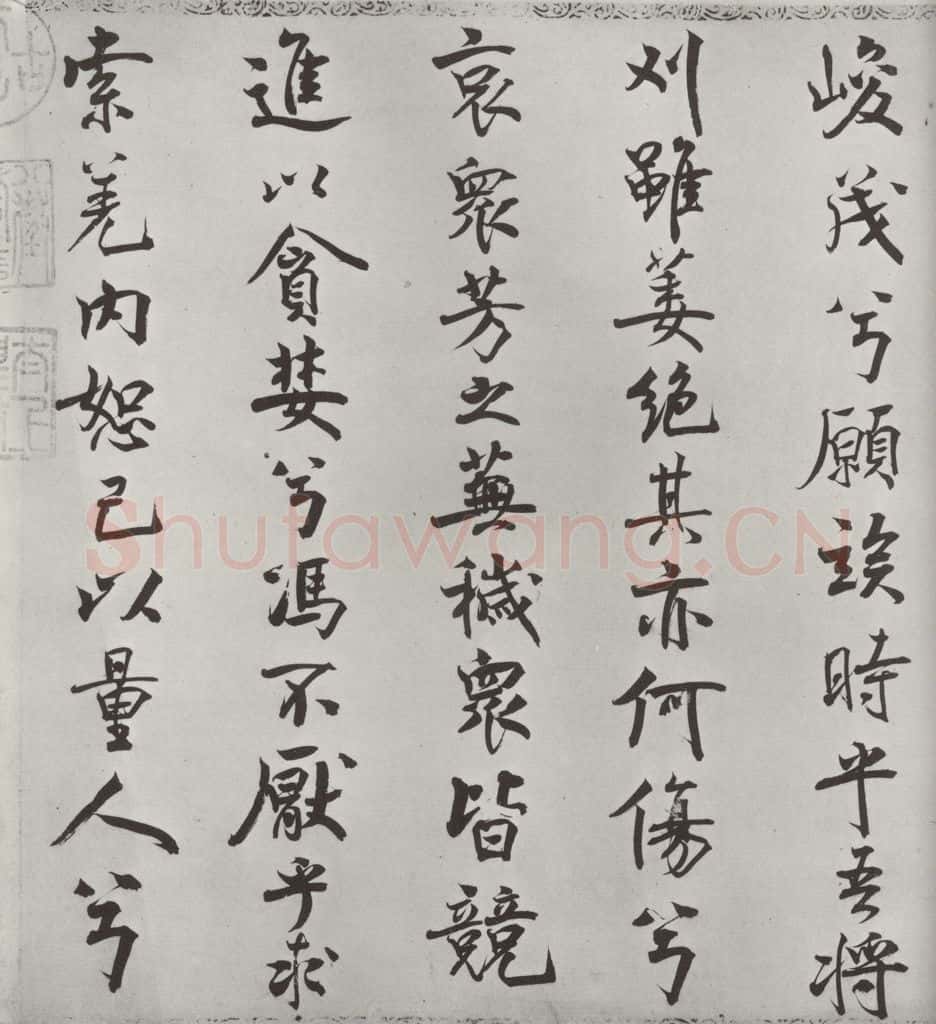 峻茂兮願竢時乎吾將
刈雖萎絶其亦何傷兮
哀衆芳之蕪穢衆皆競
進以貪婪兮馮不厭乎求
索羌内恕己以量人兮
Shufawang.CN